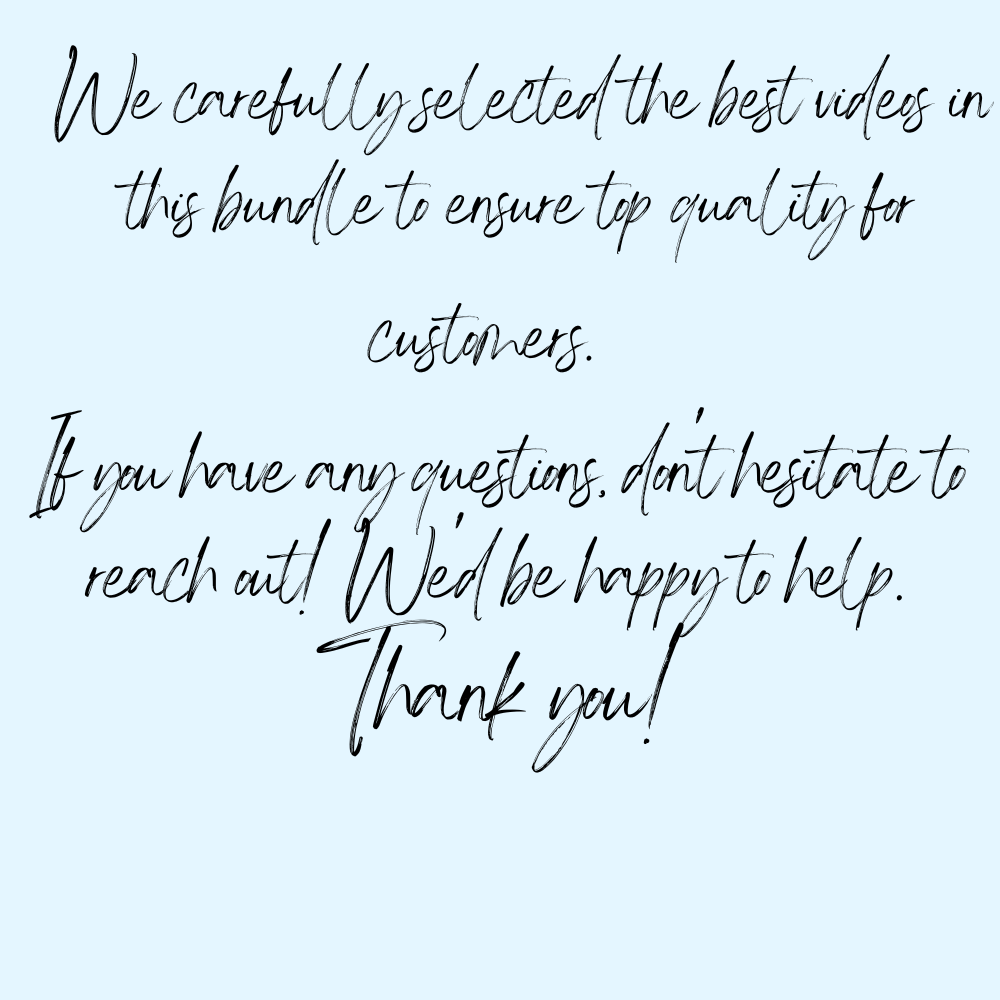 We carefully selected the best videos in
this bundle to ensure top quality for
customers.
If you have any questions, don't hesitate to
reach out! We'd be happy to help.
Thank you!